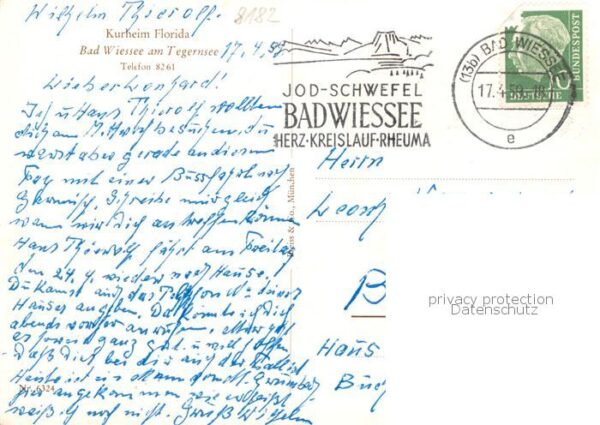 Wilhelm Thierolf.
8182
Kurheim Florida
Bad Wiessee am Tegernsee
Telefon 8261
17.4.59
Lieber Leonhard!
Ich u. Hans Thierolf wollten
dich am Mittwoch besuchen, du
warst aber gerade an diesem
Tag mit einer Busfahrt nach
Schreibe mir gleich
wann wir dich antreffen können
Hans Thierolf fährt am Freitag
den 24. 4. wieder nach Hause.
Du kannst auch das Telefon Nr. deines
Hauses angeben. Da könnte ich dich
abends vorher anrufen,
es soweit ganz gut u. will hoffen
daß dich bei dir auch der Fall ist
Heute ist ein
hier angekommen wie er heißt
weiß ich noch nicht. Gruß Wilhelm
Nr. 6324
& Co., München
JOD-SCHWEFEL
BAD WIESSEE
HERZ·KREISLAUF·RHEUMA
(13b) BAD WIESSEE
17.4.59.-18
e
BUNDESPOST
Herrn
Leonh
B
Haus
Buch
privacy protection
Datenschutz